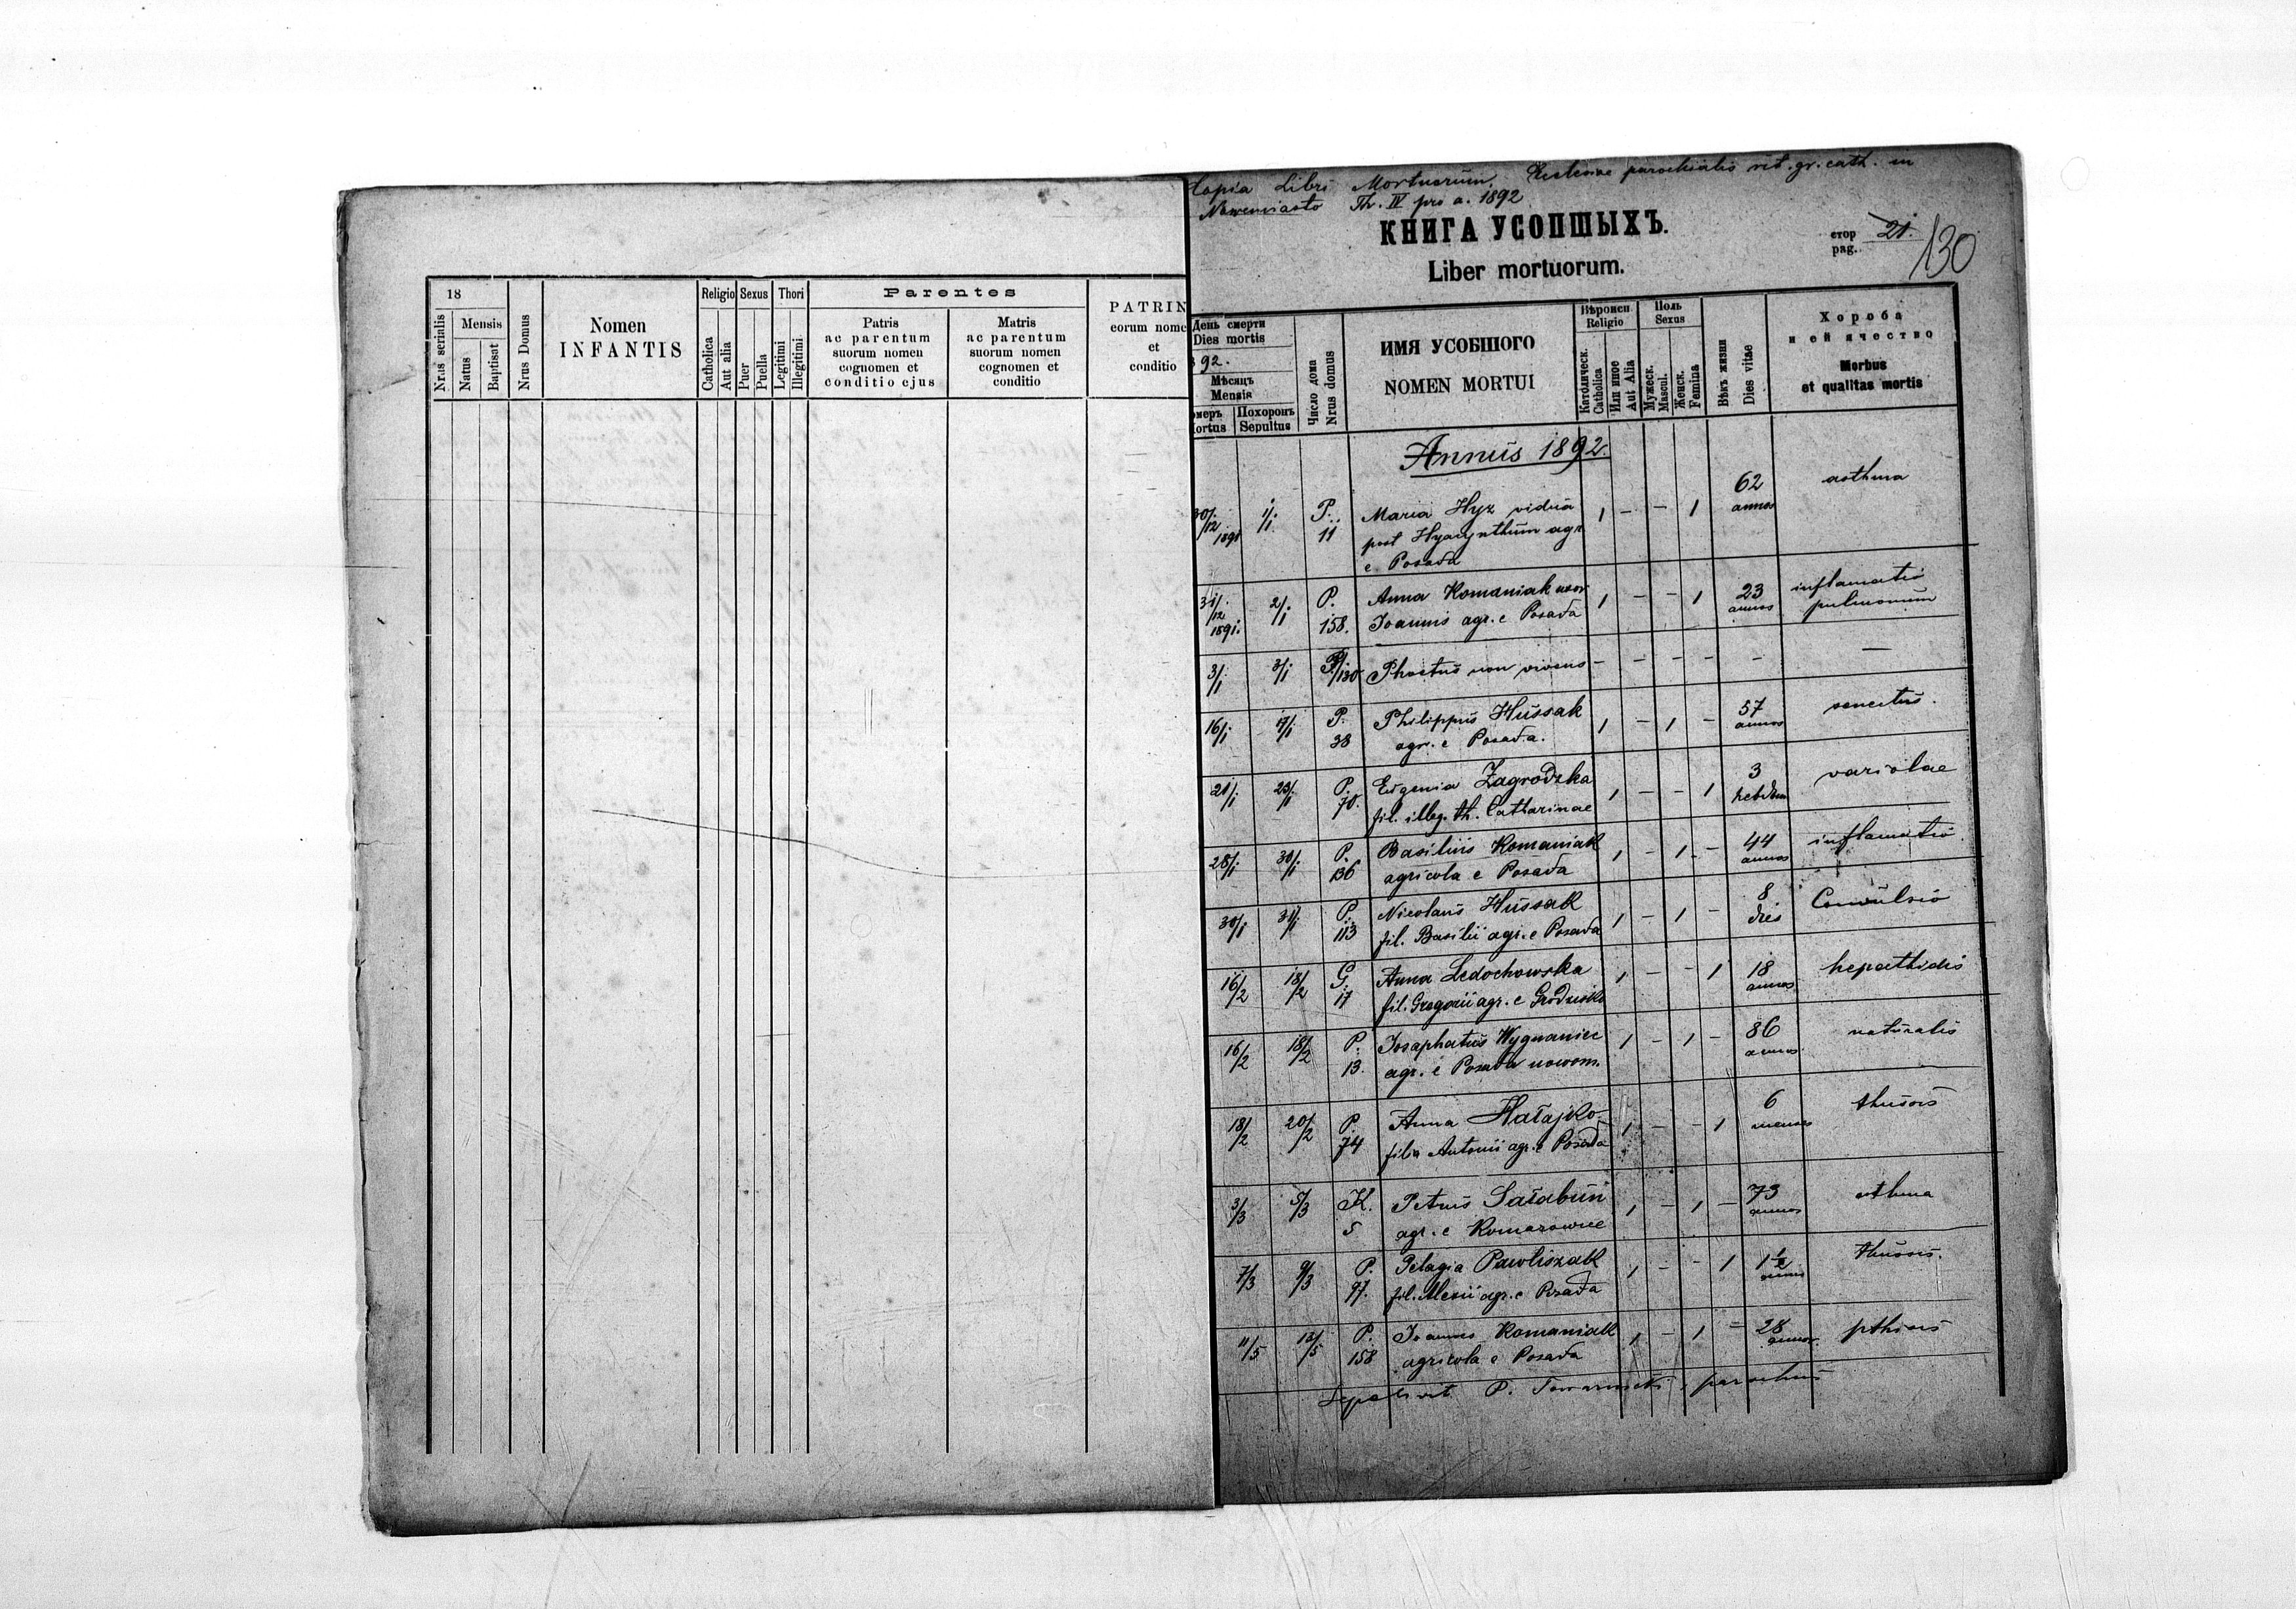 18
Nrus serialis
Mensis
Natus
Baptisat
Nrus Domus
Nomen
INFANTIS
Religio
Catholica
Aut alia
Sexus
Puer
Puella
Thori
Legitimi
Illegitimi
Parentes
Patris
ac parentum
suorum nomen
cognomen et
conditio ejus
Matris
ac parentum
suorum nomen
cognomen et
conditio
PATRIN
eorum nome
et
conditio
Copia Libri Mortuorum Ecclesiae parochialis rit. gr. cath. in
Nowemiasto Th. IV pro a. 1892
КНИГА УСОПШЫХЪ.
Liber mortuorum.
стор
pag. 21.
130
День смерти
Dies mortis
92.
Мѣсяцъ
Mensis
меръ
ortus
Похоронъ
Sepultus
Число дома
Nrus domus
ИМЯ УСОБШОГО
NOMEN MORTUI
Вѣроисп
Religio
Католическ.
Catholica
Или иное
Aut Alia
Полъ
Sexus
Мужеск.
Mascul.
Женск.
Femina
Вѣкъ жизни
Dies vitae
Хороба
и еи ячество
Morbus
et qualitas mortis
Annus 1892.
30/12 1891 1/1 P. 11 Maria Hyz vidua 1 - - 1 62 annos asthma
post Hyacynthum agr
e Posada
31/12 1891. 2/1 P. 158. Anna Romaniak uxor 1 - - 1 23 annos inflamatio
Joannis agr. e Posada pulmonum
3/1 3/1 P/130 Phoetus non vivens - - - - - -
16/1 17/1 P. 38 Philippus Hussak 1 - 1 - 57 annos senectus.
agr. e Posada.
21/1 23/1 P. 70. Eugenia Zagrodzka 1 - - 1 3 hebdom variolae
fil. illeg. th. Catharinae
28/1 30/1 P. 136 Basilius Romaniak 1 - 1 - 44 annos inflamatio
agricola e Posada
30/1 31/1 P. 113 Nicolaus Hussak 1 - 1 - 8 dies Convulsio
fil. Basilii agr. e Posada
16/2 18/2 G. 17 Anna Ledochowska 1 - - 1 18 annos hepathidis
fil. Gregorii agr. e Grodzisko
16/2 18/2 P. 13. Josaphatus Wygnaniec 1 - 1 - 86 annos naturalis
agr. e Posada nowom.
18/2 20/2 P. 74 Anna Hałajko 1 - - 1 6 menses thussis
filia Antonii agr. e Posada
3/3 5/3 K. 5 Petrus Sałabun 1 - 1 - 73 annos asthma
agr. e Komarowice
7/3 9/3 P. 97. Pelagia Pawliszak 1 - - 1 1 1/2 annos thussis.
fil. Alexii agr. e Posada
11/5 13/5 P. 158 Joannes Romaniak 1 - 1 - 28 annos. pthisis
agricola e Posada
Sepelivit P. parochus